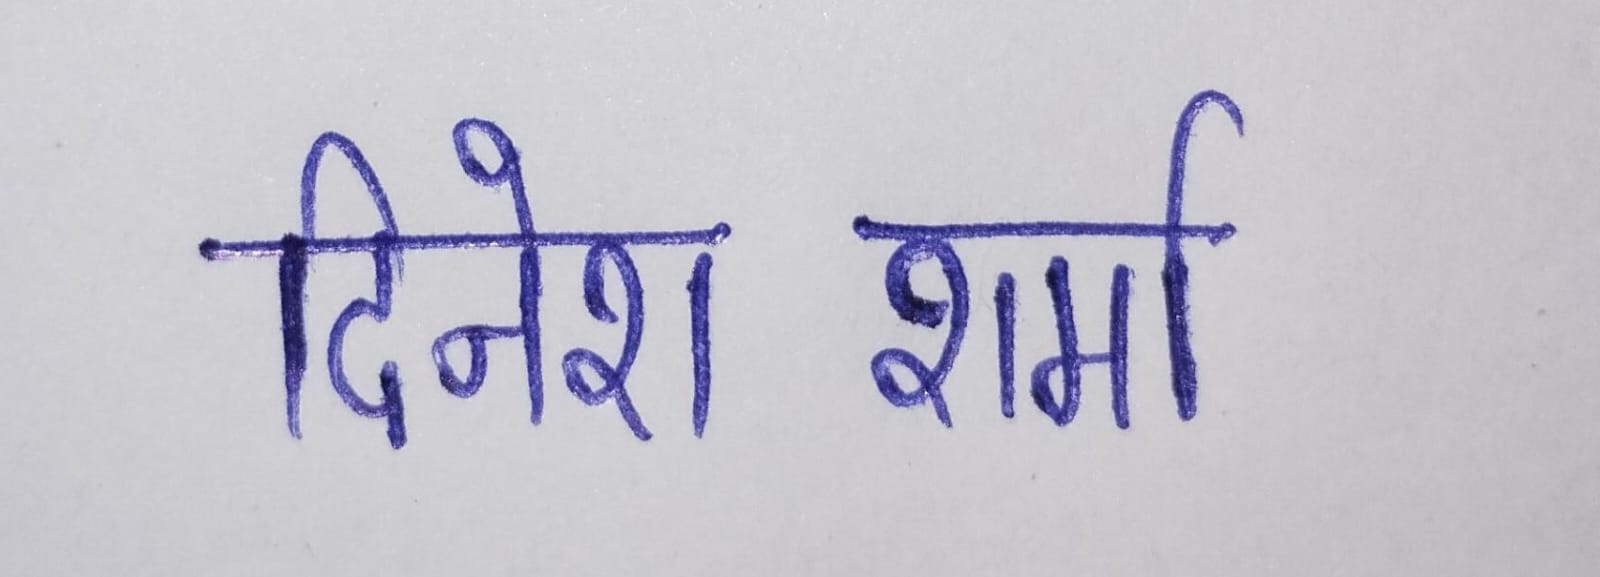 दिनेश शर्मा